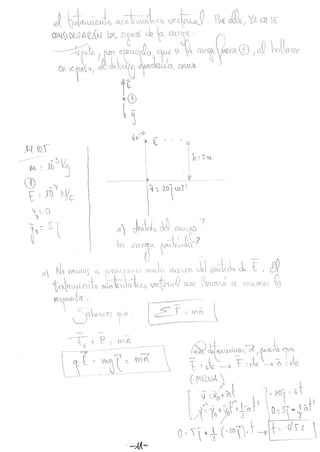 el tratamiento matemático vectorial. Por ello, YA NO SE
CONSIDERARÁN los signos de la carga.
por ejemplo, que si la carga fuera ⊕, al hallarse
en reposo, el dibujo quedaría como
E
⊕
g
17.105
m = 10⁻⁵ Kg
⊕
E = 10⁴ N/C
v₀ = 0
y₀ = 5 j
v₀=0
E
h = 5 m
v = 20 j m/s
a) ¿Sentido del campo?
b) carga partícula?
a) No vamos a presuponer nada acerca del sentido de E. El
tratamiento matemático vectorial nos llevará a conocer la
respuesta.
Sabemos que:
Σ F = m a
+ P = m a
q E - m g j = m a
determinar a, puesto que
E = cte → F = cte → a = cte
(MRUA)
v = v₀ + a t
y = y₀ + v₀ t + 1/2 a t²
-20 j = a t
0 = 5 j + 1/2 a t²
0 = 5 j + 1/2 (-20 j) . t → t = 0'5 s
-11-